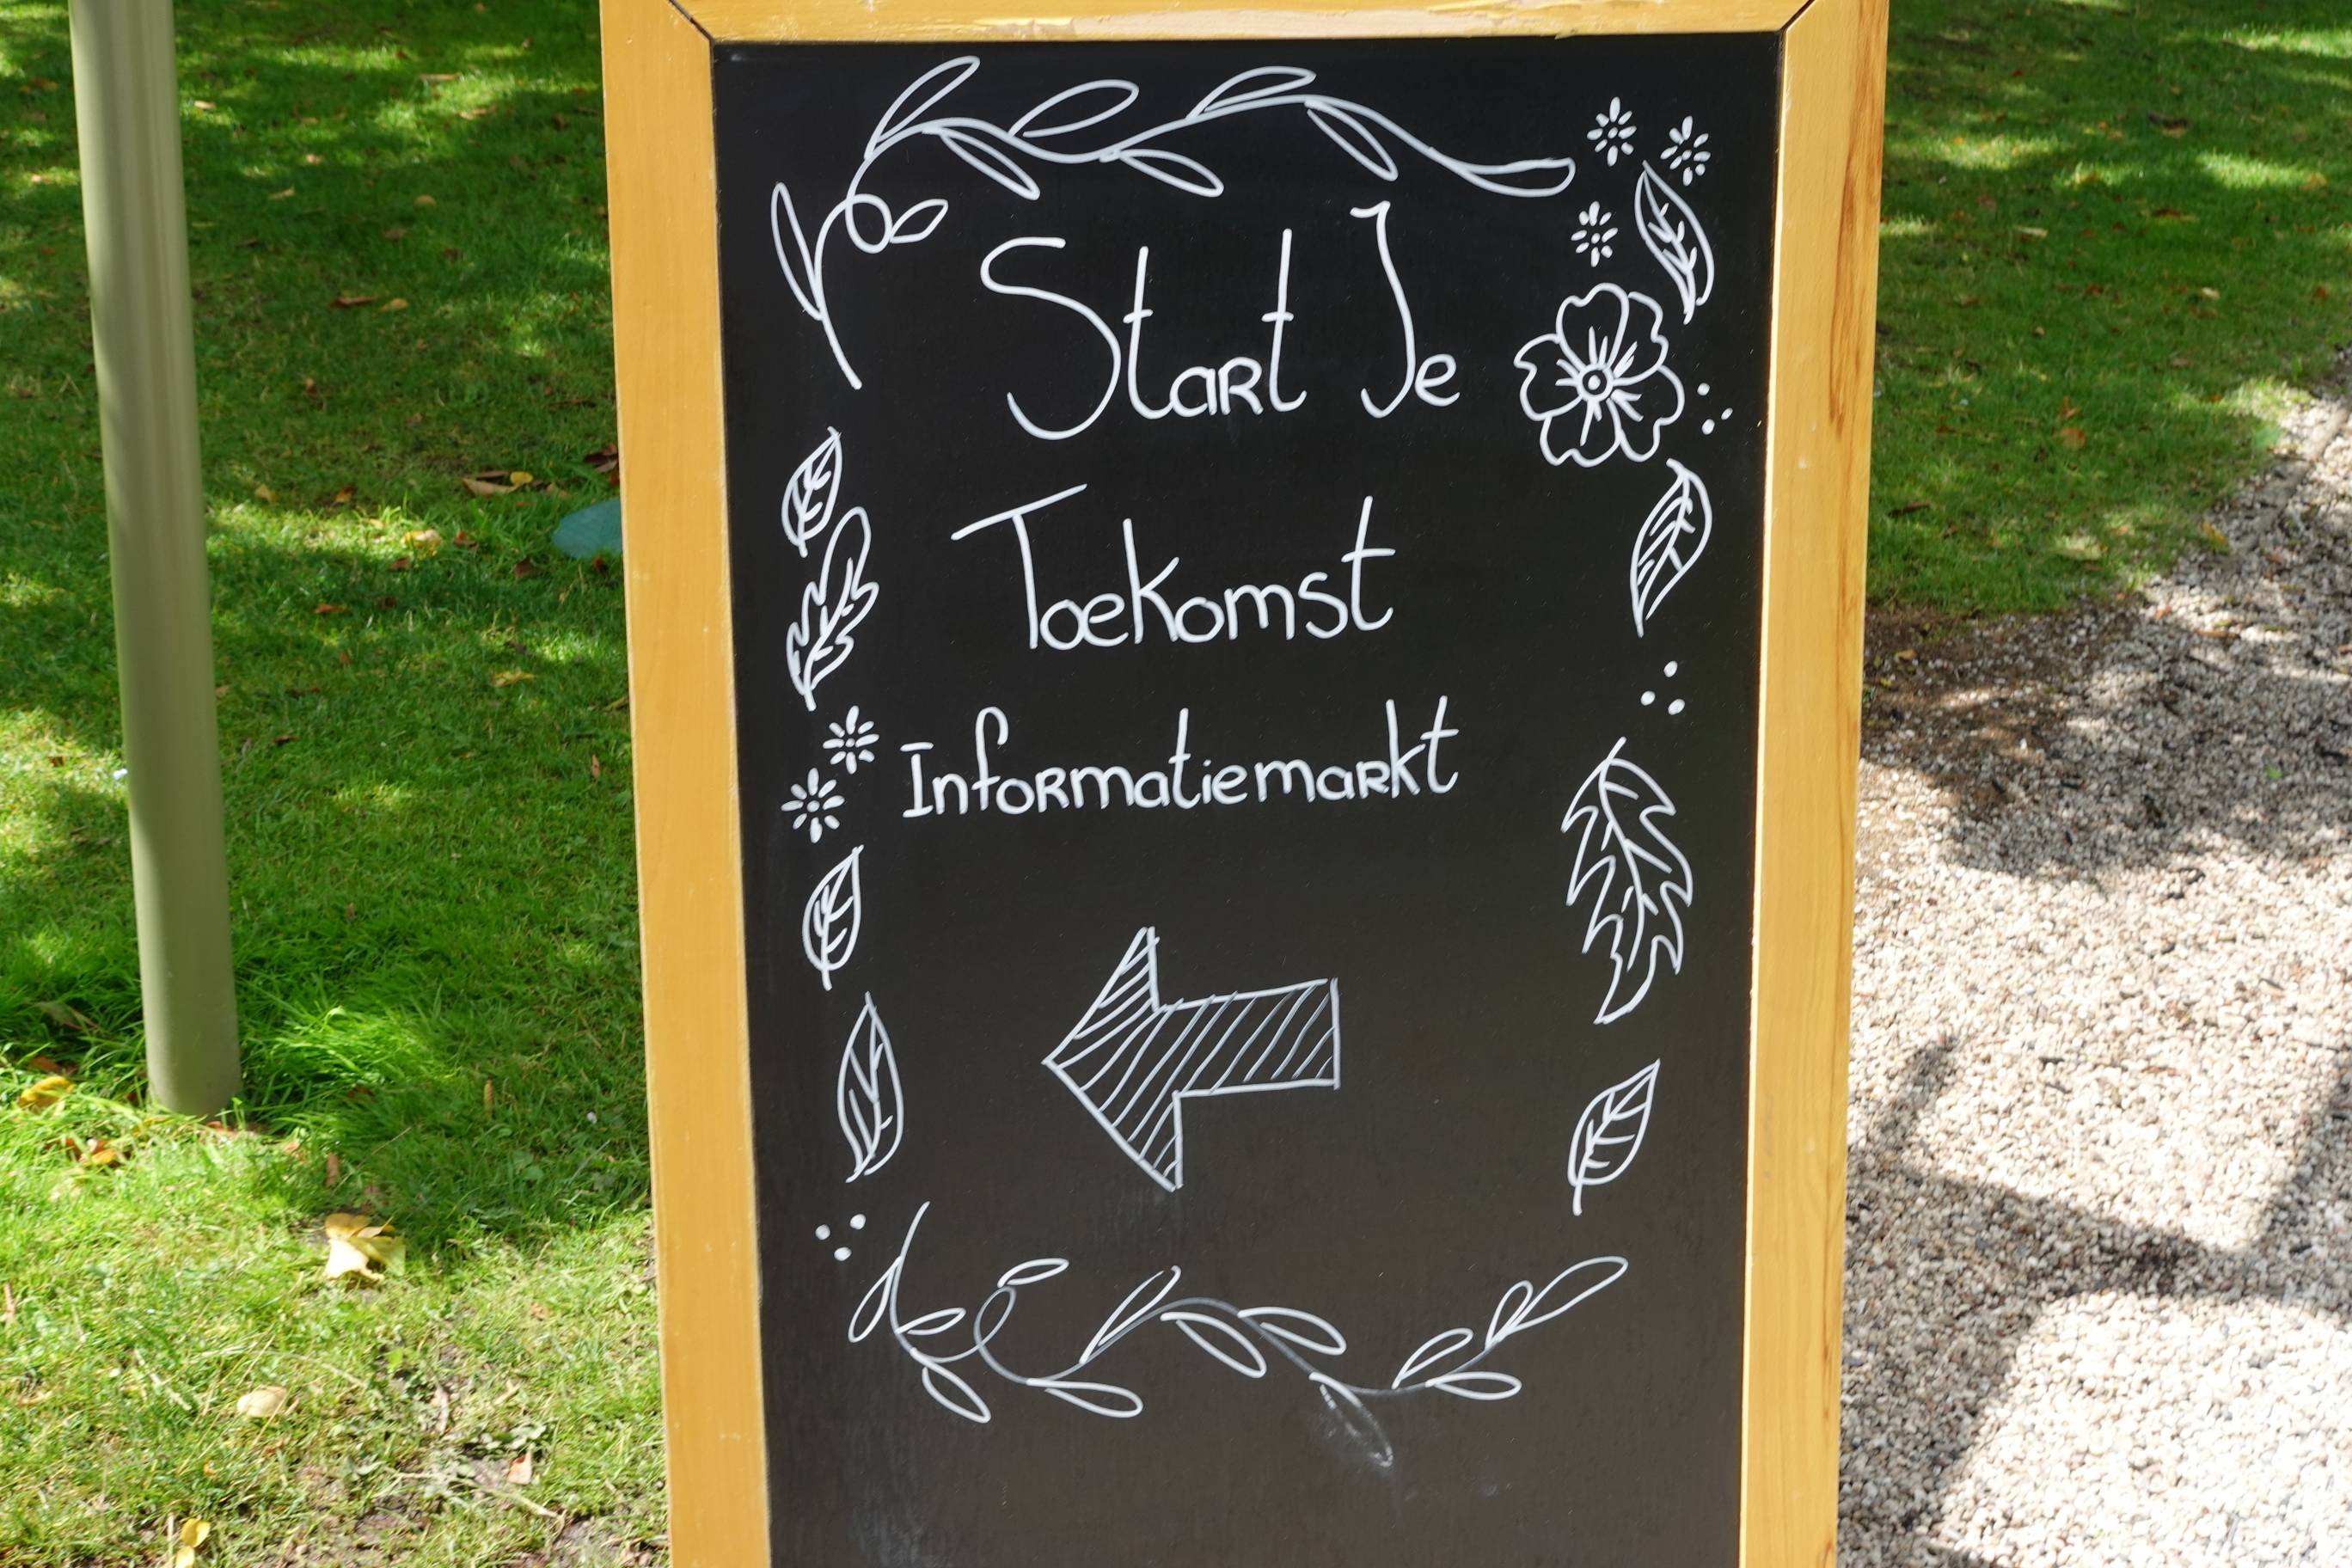 Start Je
Toekomst
Informatiemarkt